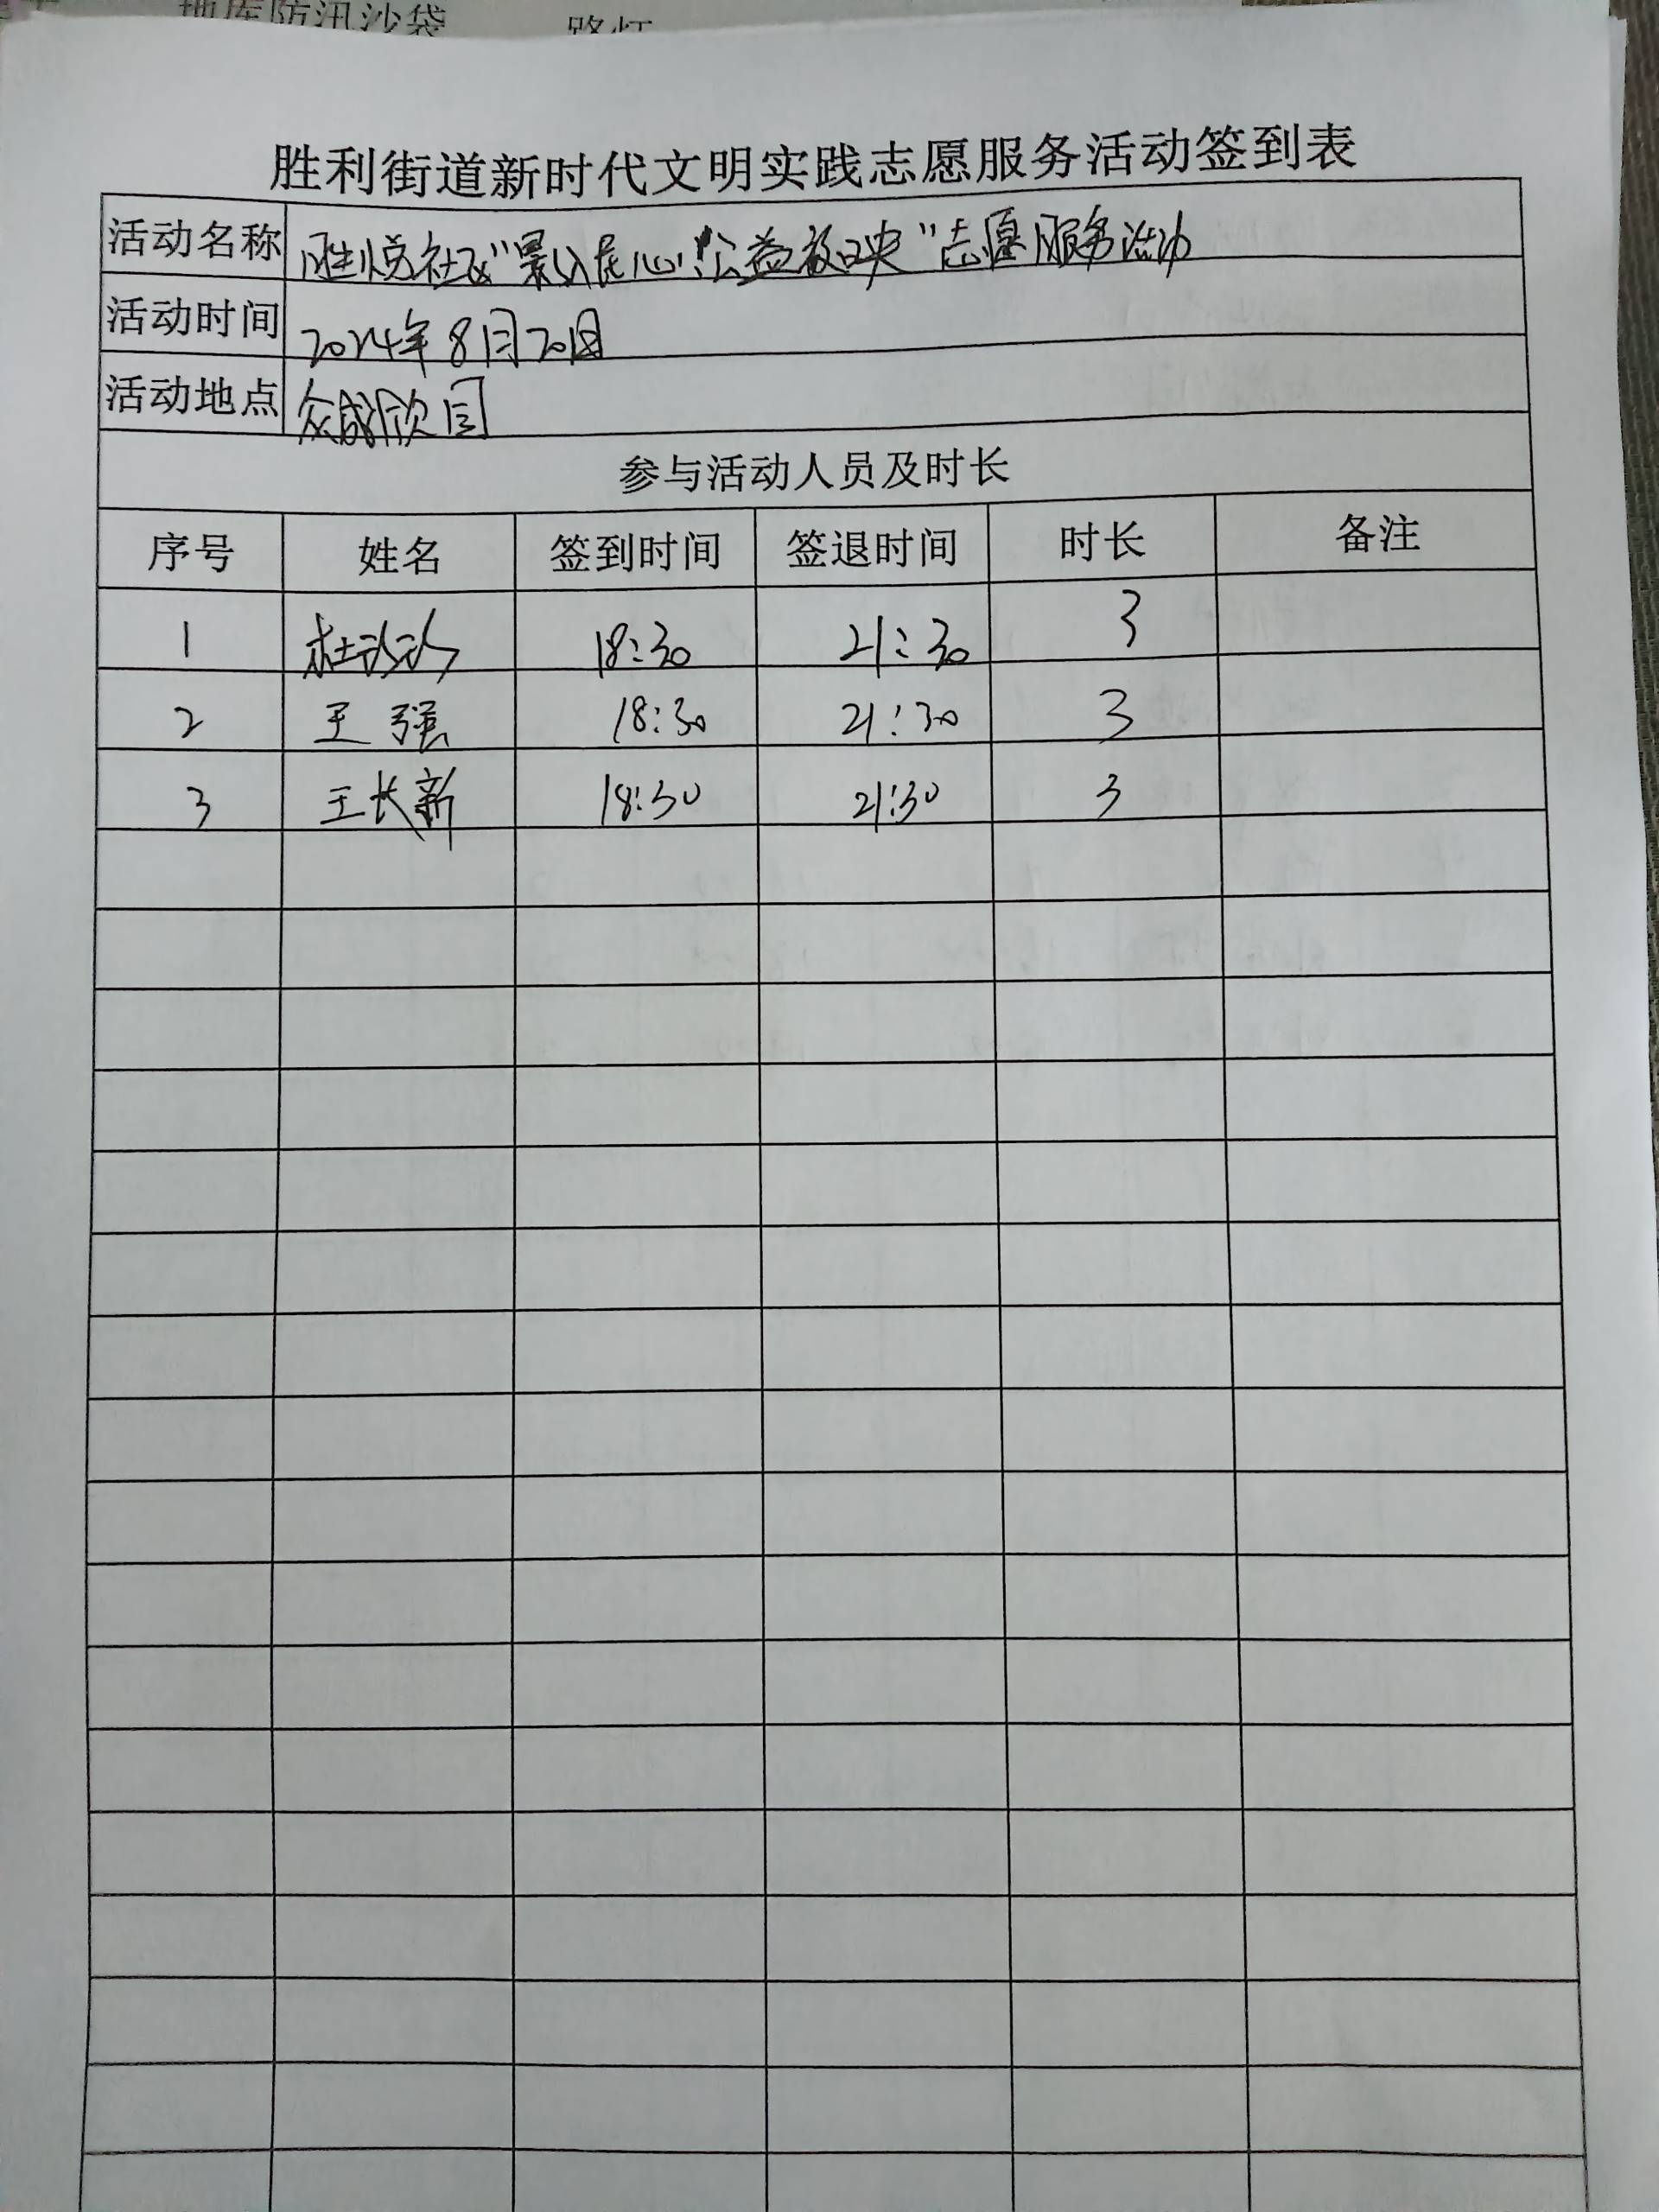 地库防汛沙袋 路灯
胜利街道新时代文明实践志愿服务活动签到表
活动名称 胜悦社区"影入居心 公益放映"志愿服务活动
活动时间 2024年8月20日
活动地点 众成欣园
参与活动人员及时长
序号 姓名 签到时间 签退时间 时长 备注
1 杜 18:30 21:30 3
2 王强 18:30 21:30 3
3 王长新 18:30 21:30 3